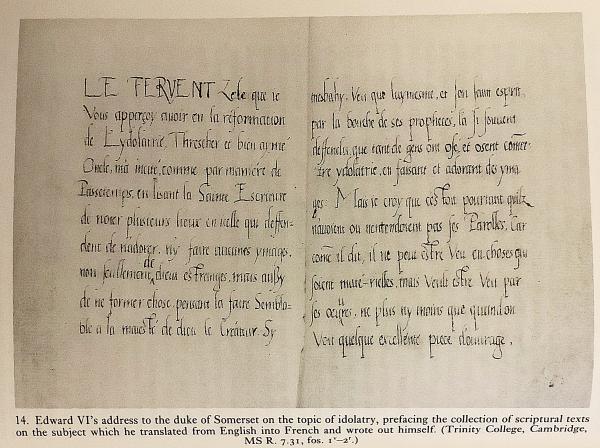 LE FERVENT Zele que ie
Vous apperçoy auoir en la reformation
de L'ydolatrie, Treschier et bien aymé
Oncle, m'a incité, comme par maniere de
Passetemps, en lisant la Saincte Escriture
de noter plusieurs lieux en icelle qui deffen-
dent de n'adorer, ny faire aucunes ymages,
non seullement de dieux estranges, mais aussy
de ne former chose, pensant la faire Sembla-
ble a la maiesté de dieu le Createur. Sy
mesbahy, Veu que luymesme, et son sainct esprit,
par la bouche de ses prophetes, la si souvent
deffendu, que tant de gens ont osé, et osent comet-
tre ydolatrie, en faisant et adorant des yma
ges. Mais ie croy que cestoit pourtant quilz
nauoient ou nentendoient pas ses Parolles, Car
come il dit, il ne peut estre Veu en choses qui
soient mate-rielles, mais Veult estre Veu par
ses oeuvres, ne plus ny moins que quand on
Veu quelque excellente piece d'ouurage,
14. Edward VI's address to the duke of Somerset on the topic of idolatry, prefacing the collection of scriptural texts
on the subject which he translated from English into French and wrote out himself. (Trinity College, Cambridge,
MS R. 7.31, fos. 1ʳ–2ʳ.)